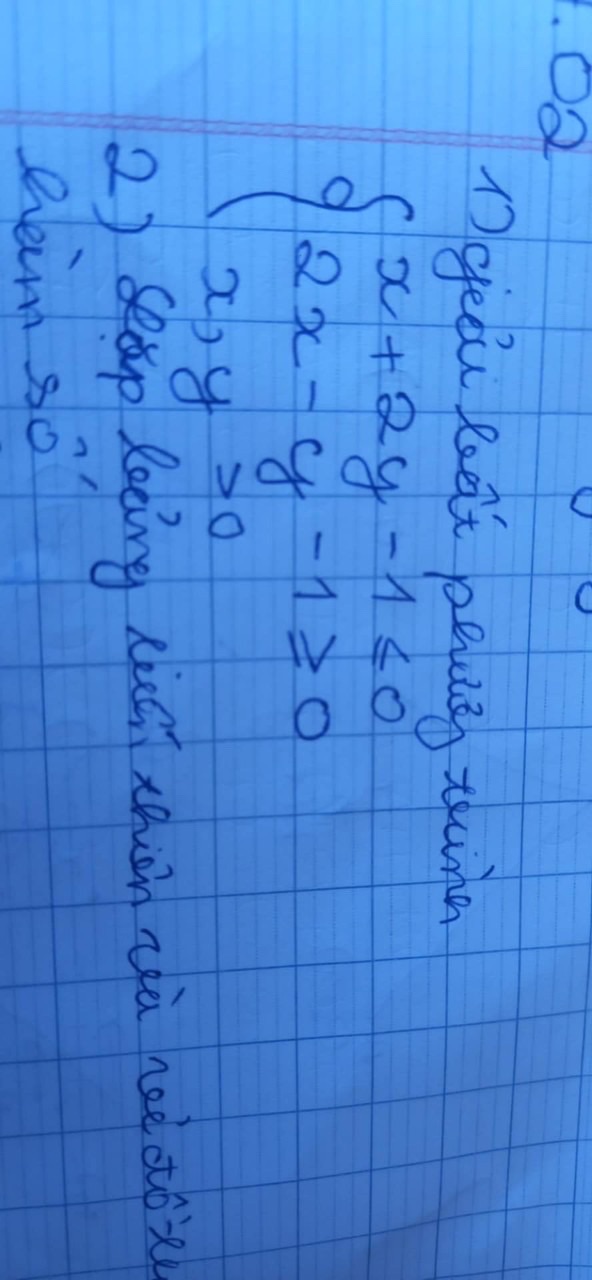 02
1) giải bất phương trình
x + 2y - 1 ≤ 0
2x - y - 1 ≥ 0
x, y > 0
2) Lập bảng biến thiên và vẽ đồ
hàm số